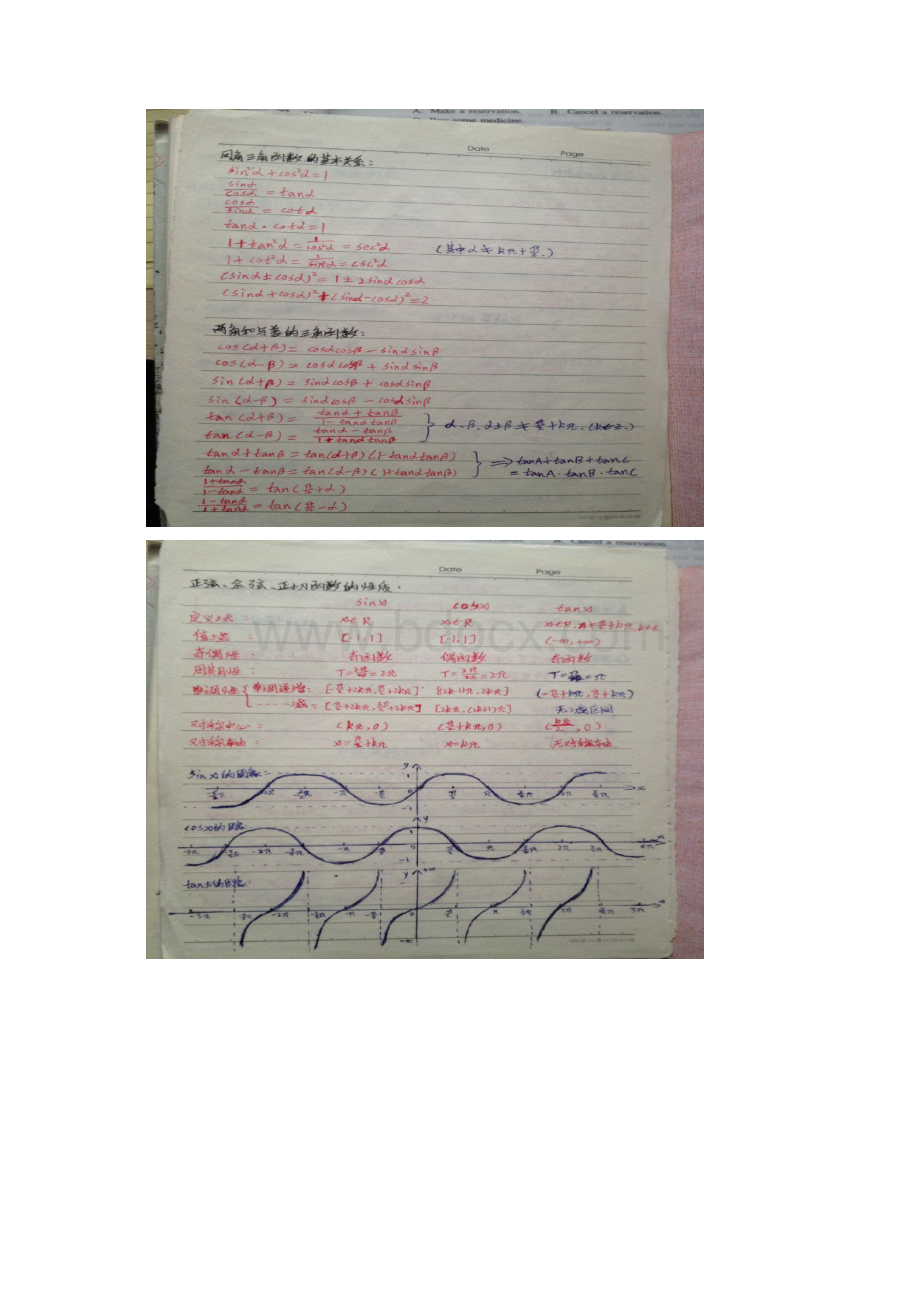 A. Make a reservation. B. Cancel a reservation.
Buy some medicine.
Date Page
同角三角函数的基本关系：
sin²α + cos²α = 1
sinα/cosα = tanα
cosα/sinα = cotα
tanα · cotα = 1
1 + tan²α = 1/cos²α = sec²α （其中 α ≠ kπ + π/2.）
1 + cot²α = 1/sin²α = csc²α
(sinα ± cosα)² = 1 ± 2sinαcosα
(sinα + cosα)² + (sinα - cosα)² = 2
两角和与差的三角函数：
cos(α+β) = cosαcosβ - sinαsinβ
cos(α-β) = cosαcosβ + sinαsinβ
sin(α+β) = sinαcosβ + cosαsinβ
sin(α-β) = sinαcosβ - cosαsinβ
tan(α+β) = (tanα + tanβ)/(1 - tanαtanβ)
tan(α-β) = (tanα - tanβ)/(1 + tanαtanβ) } α、β、α±β ≠ π/2 + kπ. (k∈Z.)
tanα + tanβ = tan(α+β)(1 - tanαtanβ)
tanα - tanβ = tan(α-β)(1 + tanαtanβ) } ⟹ tanA + tanB + tanC
= tanA · tanB · tanC
(1+tanα)/(1-tanα) = tan(π/4 + α)
(1-tanα)/(1+tanα) = tan(π/4 - α)
B. Cancel a reservation.
Date Page
正弦、余弦、正切函数的性质.
sinx cosx tanx
定义域： x∈R x∈R x∈R, x≠π/2+kπ, k∈Z
值域： [-1,1] [-1,1] (-∞,+∞)
奇偶性： 奇函数 偶函数 奇函数
周期性： T=2π/ω=2π T=2π/ω=2π T=π/ω=π
单调性 { 单调递增： [-π/2+2kπ, π/2+2kπ] [(2k-1)π, 2kπ] (-π/2+kπ, π/2+kπ)
减： [π/2+2kπ, 3π/2+2kπ] [2kπ, (2k+1)π] 无减区间
对称中心： (kπ,0) (π/2+kπ,0) (kπ/2,0)
对称轴： x=π/2+kπ x=kπ 无对称轴
sinx的图象：
y
1
0
-1
x
cosx的图象：
y
1
0
-1
x
tanx的图象：
y
+∞
0
-∞
x